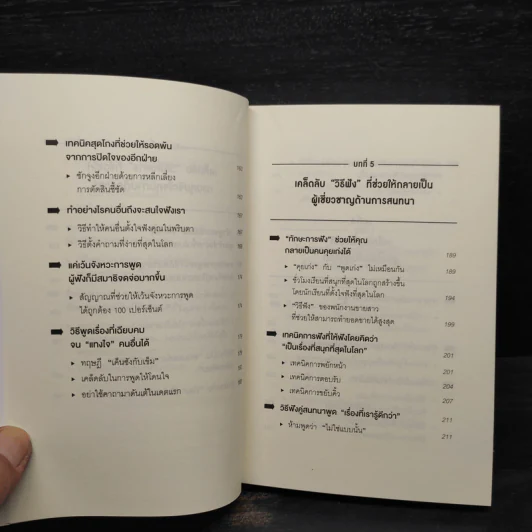 เทคนิคสุดโกงที่ช่วยให้รอดพ้น
จากการปิดใจของอีกฝ่าย
ชักจูงอีกฝ่ายด้วยการหลีกเลี่ยง
การตัดสินชี้ชัด
ทำอย่างไรคนอื่นถึงจะสนใจฟังเรา
วิธีทำให้คนอื่นตั้งใจฟังคุณในพริบตา
วิธีตั้งคำถามที่ง่ายที่สุดในโลก
แค่เว้นจังหวะการพูด
ผู้ฟังก็มีสมาธิจดจ่อมากขึ้น
สัญญาณที่ช่วยให้เว้นจังหวะการพูด
ได้ถูกต้อง 100 เปอร์เซ็นต์
วิธีพูดเรื่องที่เฉียบคม
จน "แทงใจ" คนอื่นได้
ทฤษฎี "เค็นชังกับเซ็ม"
เคล็ดลับในการพูดให้โดนใจ
อย่าใช้คาถามาดันเต้ในเดตแรก
บทที่ 5
เคล็ดลับ "วิธีฟัง" ที่ช่วยให้กลายเป็น
ผู้เชี่ยวชาญด้านการสนทนา
"ทักษะการฟัง" ช่วยให้คุณ
กลายเป็นคนคุยเก่งได้ 189
"คุยเก่ง" กับ "พูดเก่ง" ไม่เหมือนกัน 189
ชั่วโมงเรียนที่สนุกที่สุดในโลกถูกสร้างขึ้น
โดยนักเรียนที่ตั้งใจฟังที่สุดในโลก 194
"วิธีฟัง" ของพนักงานขายสาว
ที่ช่วยให้สามารถทำยอดขายได้สูงสุด 199
เทคนิคการฟังที่ให้ฟังโดยคิดว่า
"เป็นเรื่องที่สนุกที่สุดในโลก" 201
เทคนิคการพยักหน้า 201
เทคนิคการตอบรับ 204
เทคนิคการขยับคิ้ว 207
วิธีฟังคู่สนทนาพูด "เรื่องที่เรารู้ดีกว่า" 211
ห้ามพูดว่า "ไม่ใช่แบบนั้น" 211